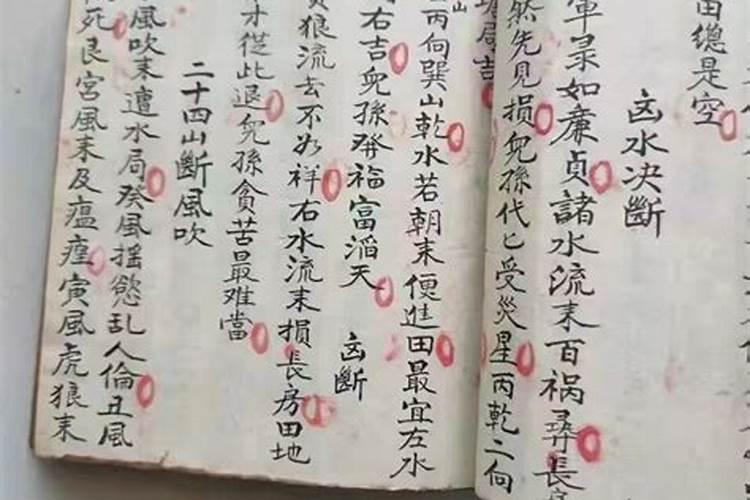 總是空
凶水决斷
軍录如廉貞諸水流来百祸彝長
然先見損兒孫代匕受災星丙乾二向
局吉
丙向巽山乾水若朝来便進田最宜左水
右吉兒孫發福富滔天 凶斷
狼流去不如祥右水流来損長房田地
才從此退兒孫貧苦最难當
二十四山斷風吹
風吹来遭水局癸風摇慾乱人倫丑風
死艮宮風来及瘟㾮寅風虎狼来